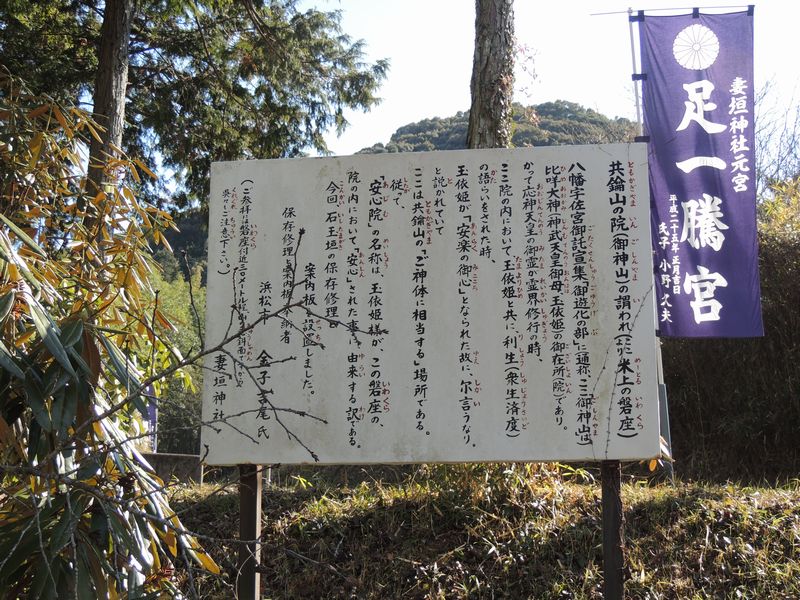 共鑰山の院(御神山)の謂われ(米上の磐座)
八幡宇佐宮御託宣集(御遊化の部)に通称、二御神山は
比咩大神(神武天皇御母、玉依姫)の御在所(院)であり。
かって応神天皇の御霊が霊界修行の時、
ここ院の内において玉依姫と共に、利生(衆生済度)
の語らいをされた時、
玉依姫が「安楽の御心」となられた故に、尓言うなり。
と説かれていて
ここは共鑰山の、「ご神体に相当する」場所である。
従て、
「安心院」の名称は、玉依姫様が、この磐座の、
院の内において、"安心"された事に由来する訳である。
今回、石玉垣の保存修理の
案内板を設置しました。
保存修理と案内板奉納者
浜松市 金子 氏
妻垣神社
(ご参拝は磐座付近
呉々もご注意下さい。)
妻垣神社元宮
足一騰宮
平成二十五年正月吉日
氏子 小野 夫